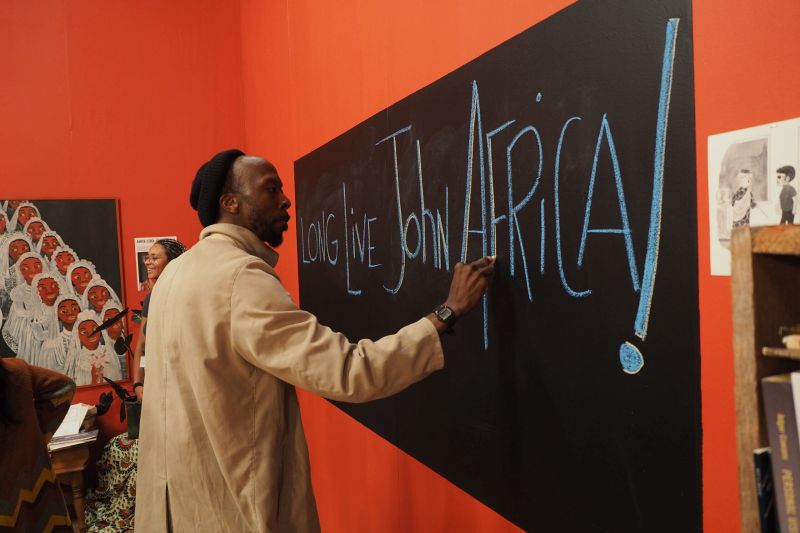 LONG LIVE JOhN AFRICA!
PERSONAL